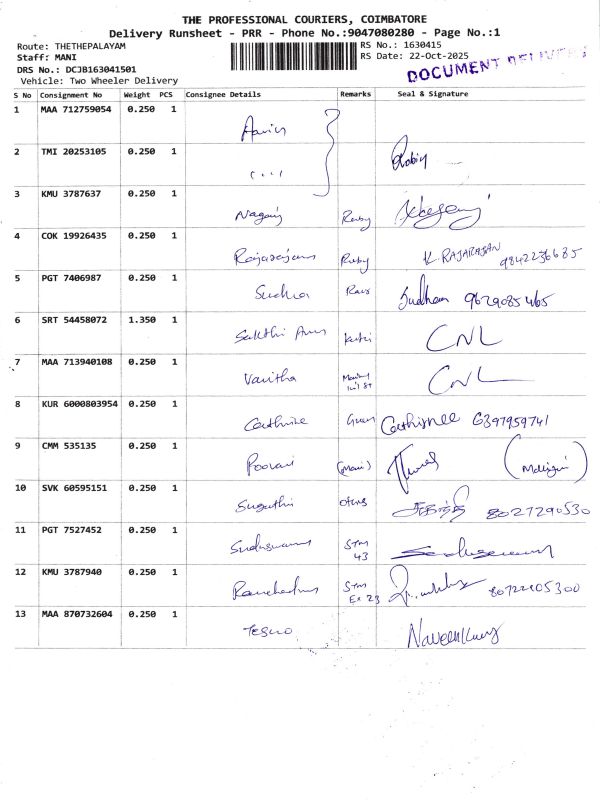 THE PROFESSIONAL COURIERS, COIMBATORE
Delivery Runsheet - PRR - Phone No.:9047080280 - Page No.:1
Route: THETHEPALAYAM
RS No.: 1630415
Staff: MANI
RS Date: 22-Oct-2025
DRS No.: DCJB163041501
DOCUMENT DELIVERY
Vehicle: Two Wheeler Delivery
S No Consignment No Weight PCS Consignee Details Remarks Seal & Signature
1 MAA 712759054 0.250 1
2 TMI 20253105 0.250 1 Robin
3 KMU 3787637 0.250 1 Nagaraj Ruby
4 COK 19926435 0.250 1 Rajarajan Ruby K. RAJARAJAN 9842236685
5 PGT 7406987 0.250 1 Sudha Sudham 9629085465
6 SRT 54458072 1.350 1 Sakthi Arun CNL
7 MAA 713940108 0.250 1 Vanitha CNL
8 KUR 6000803954 0.250 1 6397959741
9 CMM 535135 0.250 1 Poorani (Mani)
10 SVK 60595151 0.250 1 Suganthi 8027290530
11 PGT 7527452 0.250 1 Stm 43
12 KMU 3787940 0.250 1 Stm Ex 23
13 MAA 870732604 0.250 1 Naveenkumar